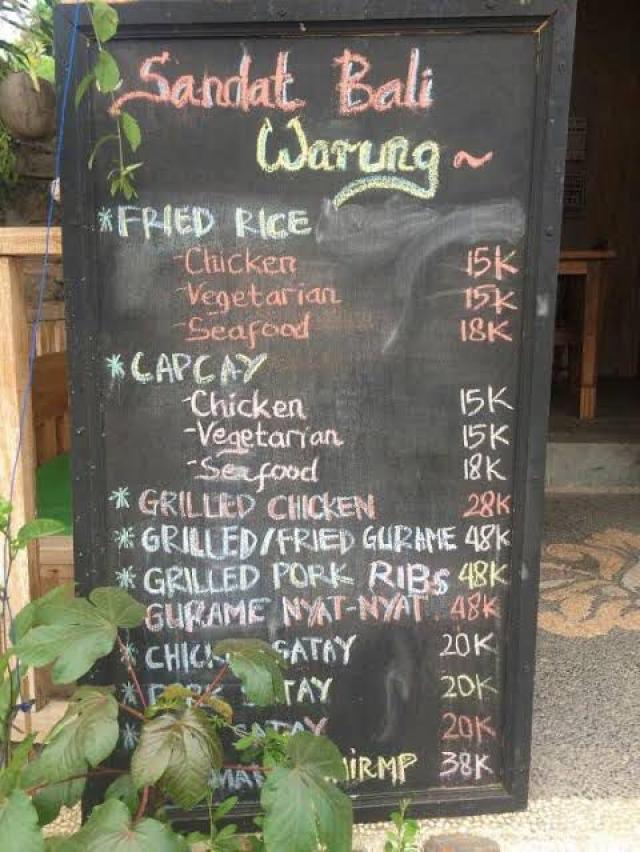 Sandat Bali
Warung ~
*FRIED RICE
-Chicken 15K
-Vegetarian 15K
-Seafood 18K
*CAPCAY
-Chicken 15K
-Vegetarian 15K
-Seafood 18K
*GRILLED CHICKEN 28K
*GRILLED/FRIED GURAME 48K
*GRILLED PORK RIBS 48K
GURAME NYAT-NYAT. 48K
SATAY 20K
20K
SATAY 20K
38K